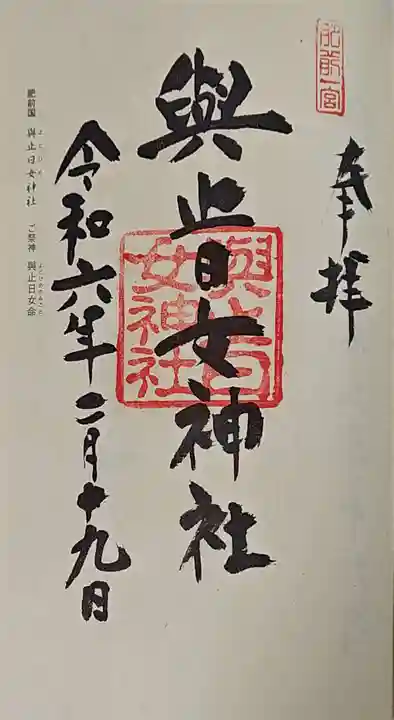 肥前一宮
奉拝
與止日女神社
與止日女神社
令和六年二月十九日
肥前国 與止日女神社 ご祭神 與止日女命